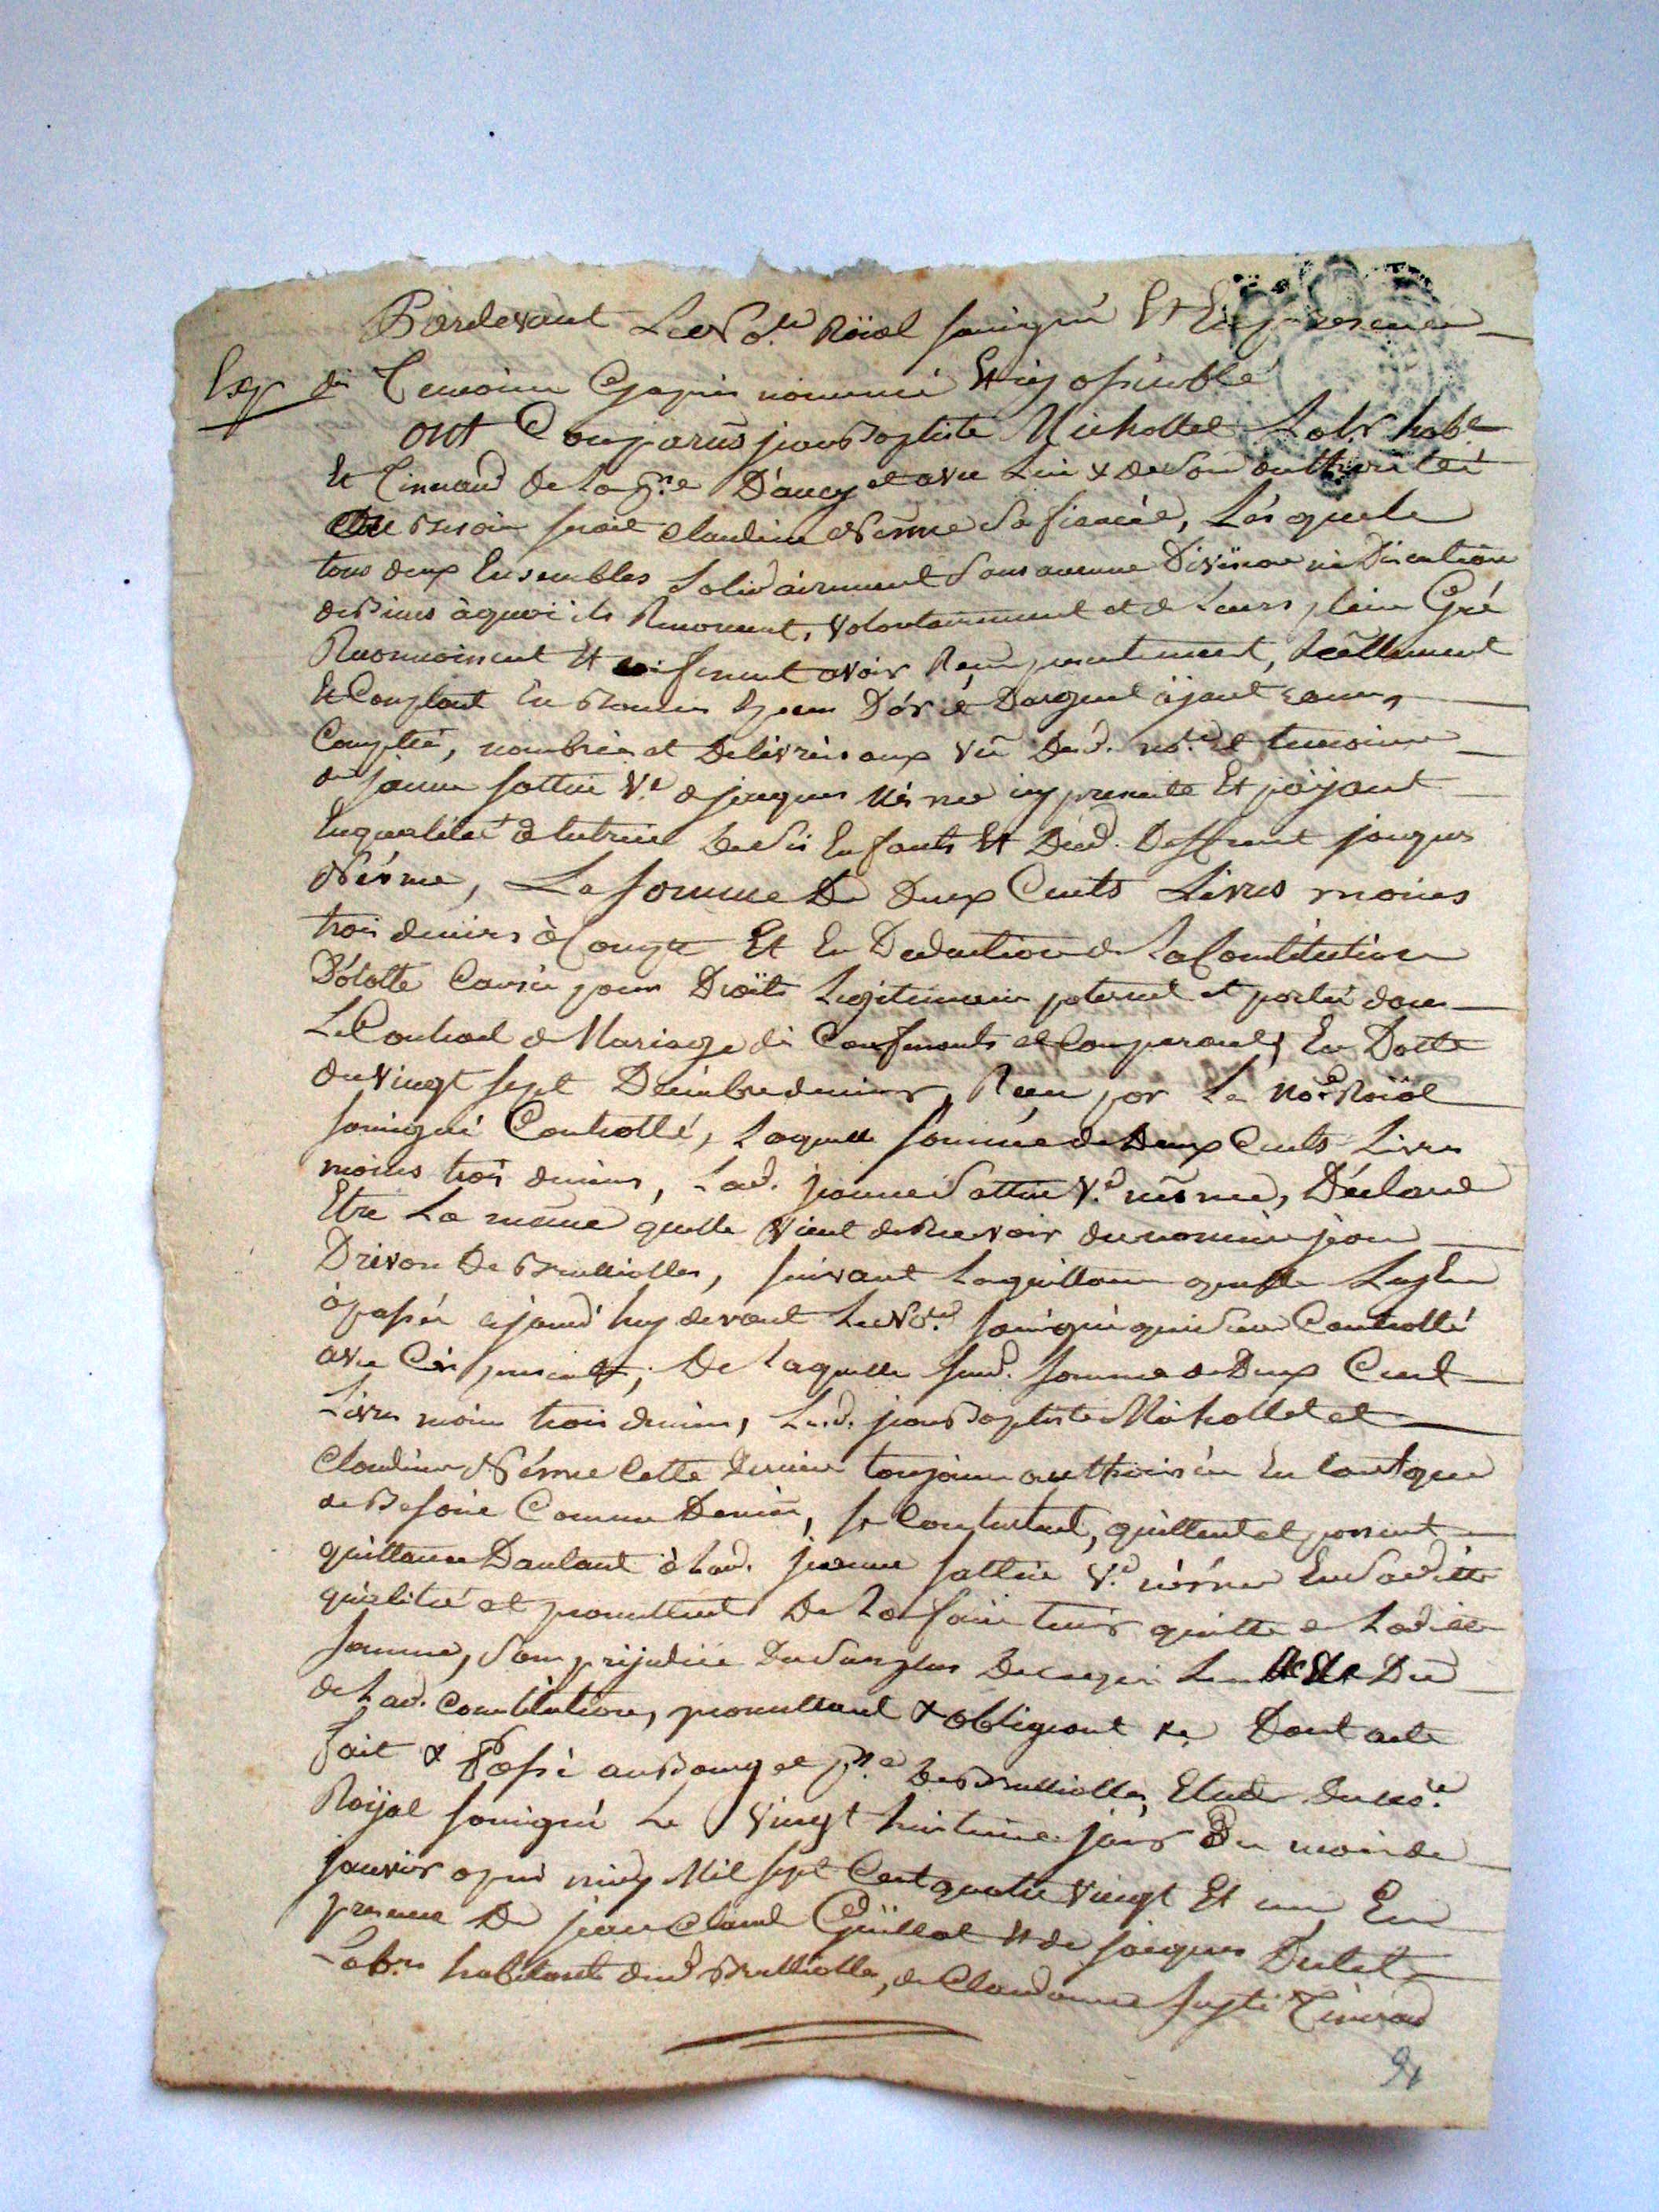 Pardevant Le No.re Röial soussigné Et En presence
Exp des Temoins Cyapres nommés Et icy assemblé
ont Comparus jean Baptiste Michollet Lab.r hab.t
Et Tisserand de la p.sse D'ancy et avec Lui & de Son authorité
Claudine Nesme Sa fiancée, Lesquels
tous deux Ensembles Solidairement Sans aucune Division ni Discution
de Biens àquoi ils Renoncent, volontairement et de Leurs plein Gré
Reconnoissent Et Confessent avoir Reçu presentement, Réellement
Et Comptant En Bonnes Especes D'or & Dargent äjant cours,
Comptées, nombrées et Delivrées aux vü Desd. no.re et temoins
de jeanne fattin V.e de jacques Nesme icy presente Et päjant
En qualité de tutrice de Ses Enfants Et Dud. Deffunt jacques
Nésme, La Somme De Deux Cents Livres moins
trois deniers à Compte Et En Deduction de La Constitution
Dotalle Causée pour Droits Legitimaires paternel et portée dans
Le Contract de Mariage des Confessants et Comparants En Datte
du vingt sept Decembre dernier, Reçu par Le No.re Roïal
soussigné Controllé, Laquelle Somme de Deux Cents Livres
moins trois deniers, Lad. jeanne fattin V.e nésme, Déclare
Etre La même quelle vient de Recevoir du nommé jean
Drivon De Brullioles, suivant La quittance quelle Luy En
à passée cejourd'huy devant Le No.re soussigné qui Sera Controllé
avec Ces presentes; De Laquelle susd. somme de Deux Cent
Livres moins trois deniers, Lesd. jean Baptiste Michollet et
Claudine Nésme Cette derniere toujours authorisée En tant que
de Besoin Comme Devant, se Contentent, quittent et passent
quittance Dautant à Lad. jeanne fattin V.e nésme En Saditte
qualité et promettent De La faire tenir quitte de Laditte
somme, Sans prejudice Du Surplus De ce qui Leur Reste Dü
de Lad. Constitution, promettant & obligeant &c. Dont acte
fait & Passé au Bourg et p.sse De Brullioles, Etude du no.re
Roÿal soussigné Le vingt huitieme jour Du mois de
janvier apres midy Mil sept Cent quatre vingt Et un En
presence De jean Claude Guillot Et de jacques Dutel
Lab.rs habitants dud Brullioles,